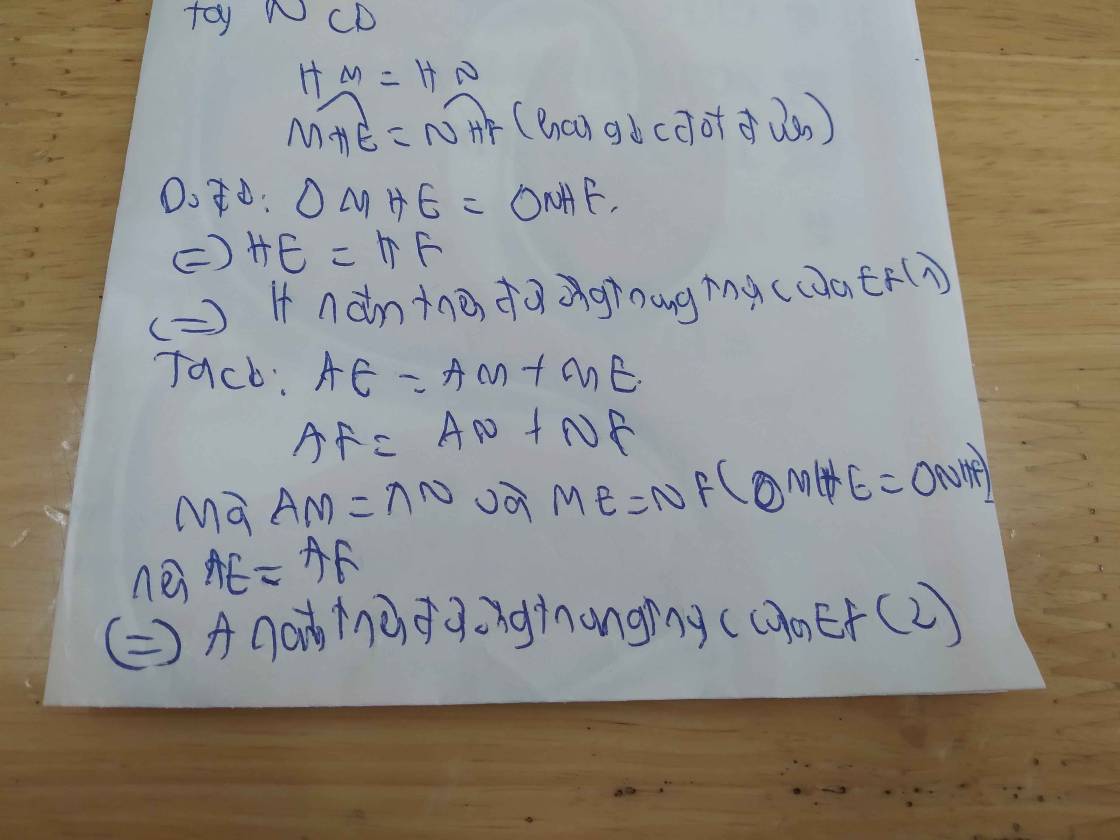 tại N có
HM = HN
MHE = NHF (hai góc đối đỉnh)
Do đó: ΔMHE = ΔNHF.
(=) HE = HF
(=) H nằm trên đường trung trực của EF (1)
Ta có: AE = AM + ME.
AF = AN + NF
Mà AM = AN và ME = NF (ΔMHE = ΔNHF)
nên AE = AF
(=) A nằm trên đường trung trực của EF (2)